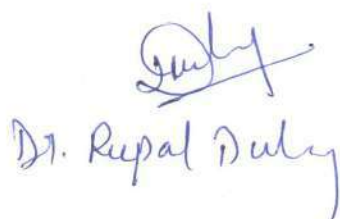 Dr. Rupal Dubey